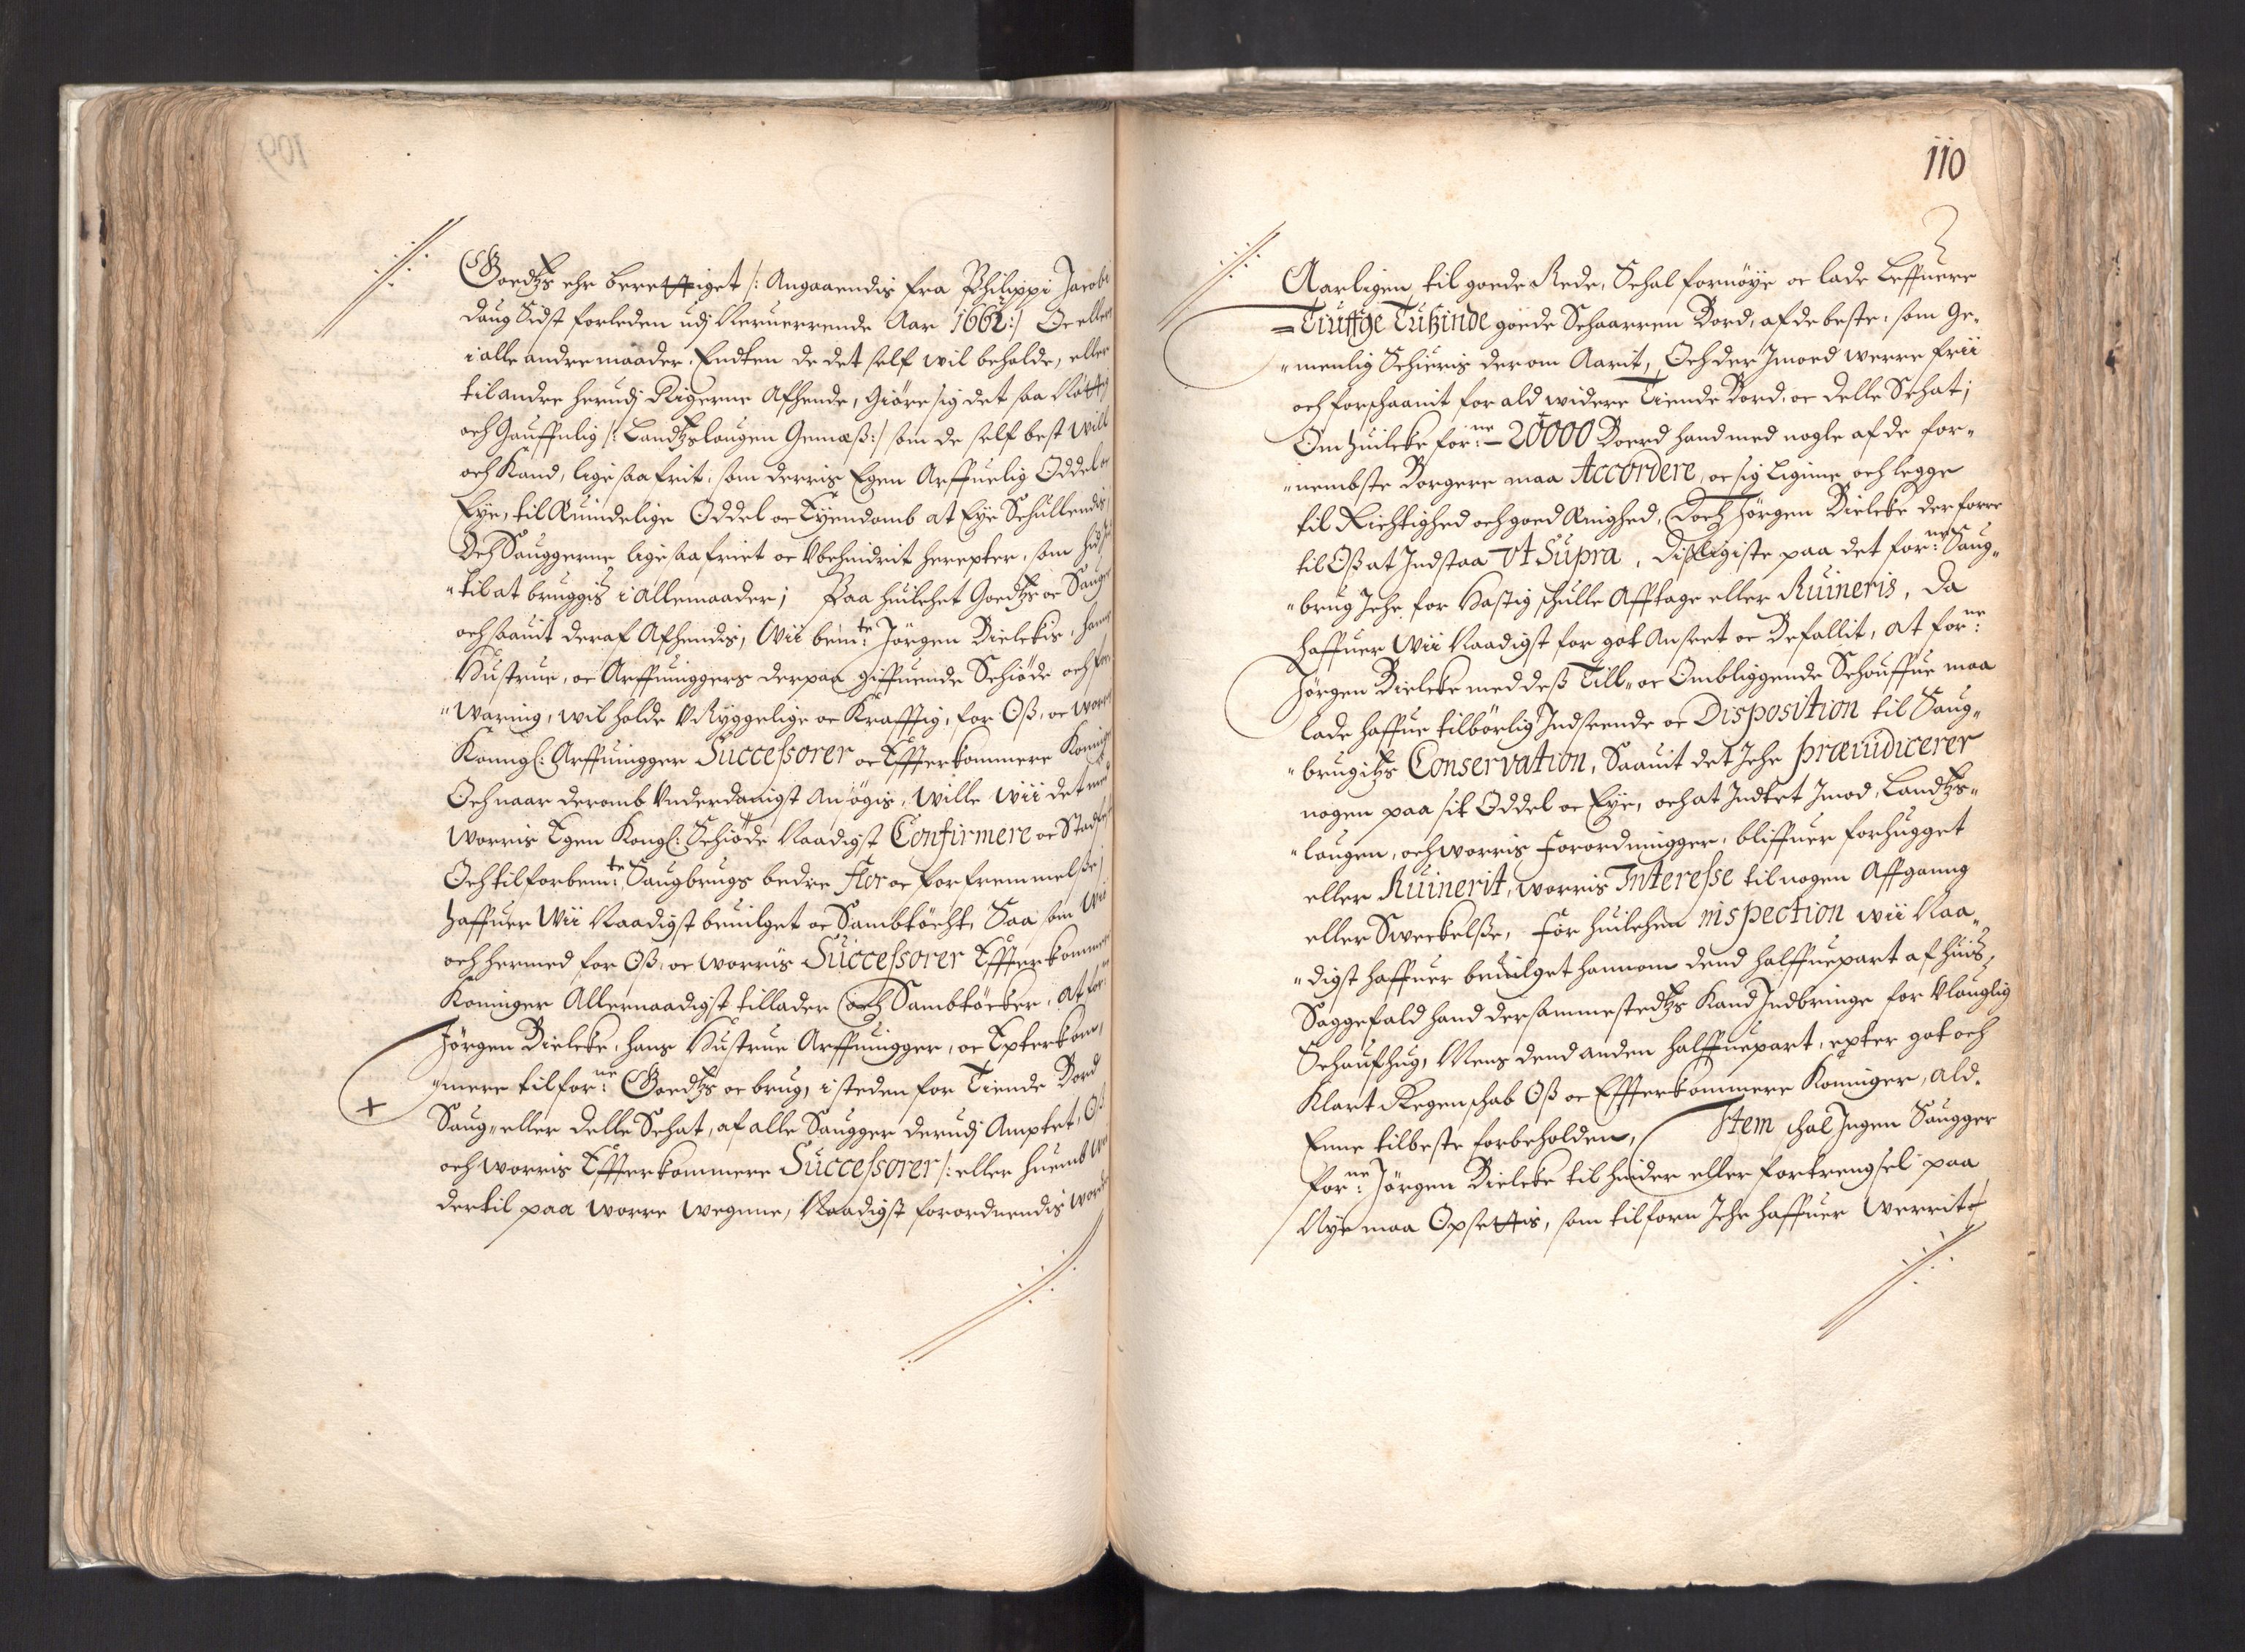 Goedtzs ehr berettiget /: Angaaendis fra Philippi Jacobi
daug Sidst forleden udj Neruerrende Aar 1662:/ Oc ellers
i alle andre maader, Endten de det self wil beholde, eller
til andre herudj Rigerne Afhende, Giöre sig det saa Nöttig
och Gauffnlig /: Landtzlougen Gemæß:/ som de self best will
och Kand, lige saa frit, som derris Egen Arffuelig Oddel oc
Eye, til Æuindelige Oddel oc Eyendomb at Eye Schullendis,
Och Sauggerne lige saa friet oc Vbehindrit herepter, som hid
"til at bruggis i allemaader; Paa huilchet Goedtzs oc Sauger
och saauit deraf Afhendis, Wii bem:te Jörgen Bielckis, hans
Hustrue, oc Arffuinggers derpaa giffuende Schiöde och for
"waring, wil holde VRyggelige oc Krafftig, for Oß, oc worre
Konngl: Arffuingger Successorer oc Effterkommere Koninger
Och naar deromb Vnderdanigst Ansögis, Wille Wii det med
Worris Egen Kongl: Schiöde Naadigst Confirmere oc Stadfeste
Och til forbem:te Saugbrugs bedre Flor oc forfremmelße;
haffuer Wii Naadigst beuilget oc Sambtöcht, Saa som Wii
och hermed for Oß, oc worris Successorer Effterkommere
Koninger Allernaadigst tillader och Sambtöcker, At for:ne
Jörgen Bielcke, hans Hustrue Arffuingger, oc Epterkom,
"mere til for:ne Goedtzs oc brug, i steden for Tiende Bord
Saug" eller Delle Schat, af alle Saugger derudj Amptet, Oß
och worris Effterkommere Successorer /: eller huemb Wii
dertil paa worre wegnne, Naadigst forordnendis worder
110
Aarligen til goede Rede, Schal fornöye oc lade Leffuere
= Tiuffge Tußinde goede Schaarren Bord, af de beste, som Ge,
"menlig Schieris derom Aarit, Och der Imoed werre frii
och forschaanit for ald widere Tiende Bord, oc Delle Schat;
Om huilcke for:ne – 20000 Boerd hand med nogle af de for"
"nembste Borgere maa Accordere, oc sig Ligime och legge
til Richtighed och goed Ænighed, Doch Jörgen Bielcke derforre
til Oß at Indstaa Vt Supra, Dißligiste paa det for:ne Saug"
"brug Iche for Hastig schulle Afftage eller Ruineris, Da
haffuer Wii Naadigst for got Anseet oc Befallit, at for:ne
Jörgen Bielcke med deß Till" oc Ombliggende Schouffue maa
lade haffue tilbörlig Indseende oc Disposition til Saug"
"brugitzs Conservation, Saauit det Iche præiudicerer
nogen paa sit Oddel oc Eye, och at Indtet Imod Landtzs"
"lougen, och worris Forordningger, bliffuer forhugget
eller Ruinerit, worris Interesse til nogen Affgaang
eller Sweckelße, For huilchen inspection wii Naa"
"digst haffuer beuilget hannom dend halffuepart af huis,
Saggefald hand dersammestedtzs Kand Indbringe for Vlouglig
Schoufhug, Mens dend anden halffuepart, epter got och
Klart Regenschab Oß oc Effterkommere Koninger, ald,
Enne tilbeste forbeholden, Item schal Ingen Saugger
for:ne Jörgen Bielcke til hinder eller fortrengsel paa
Nye maa Opsettis, som tilforn Iche haffuer werrit